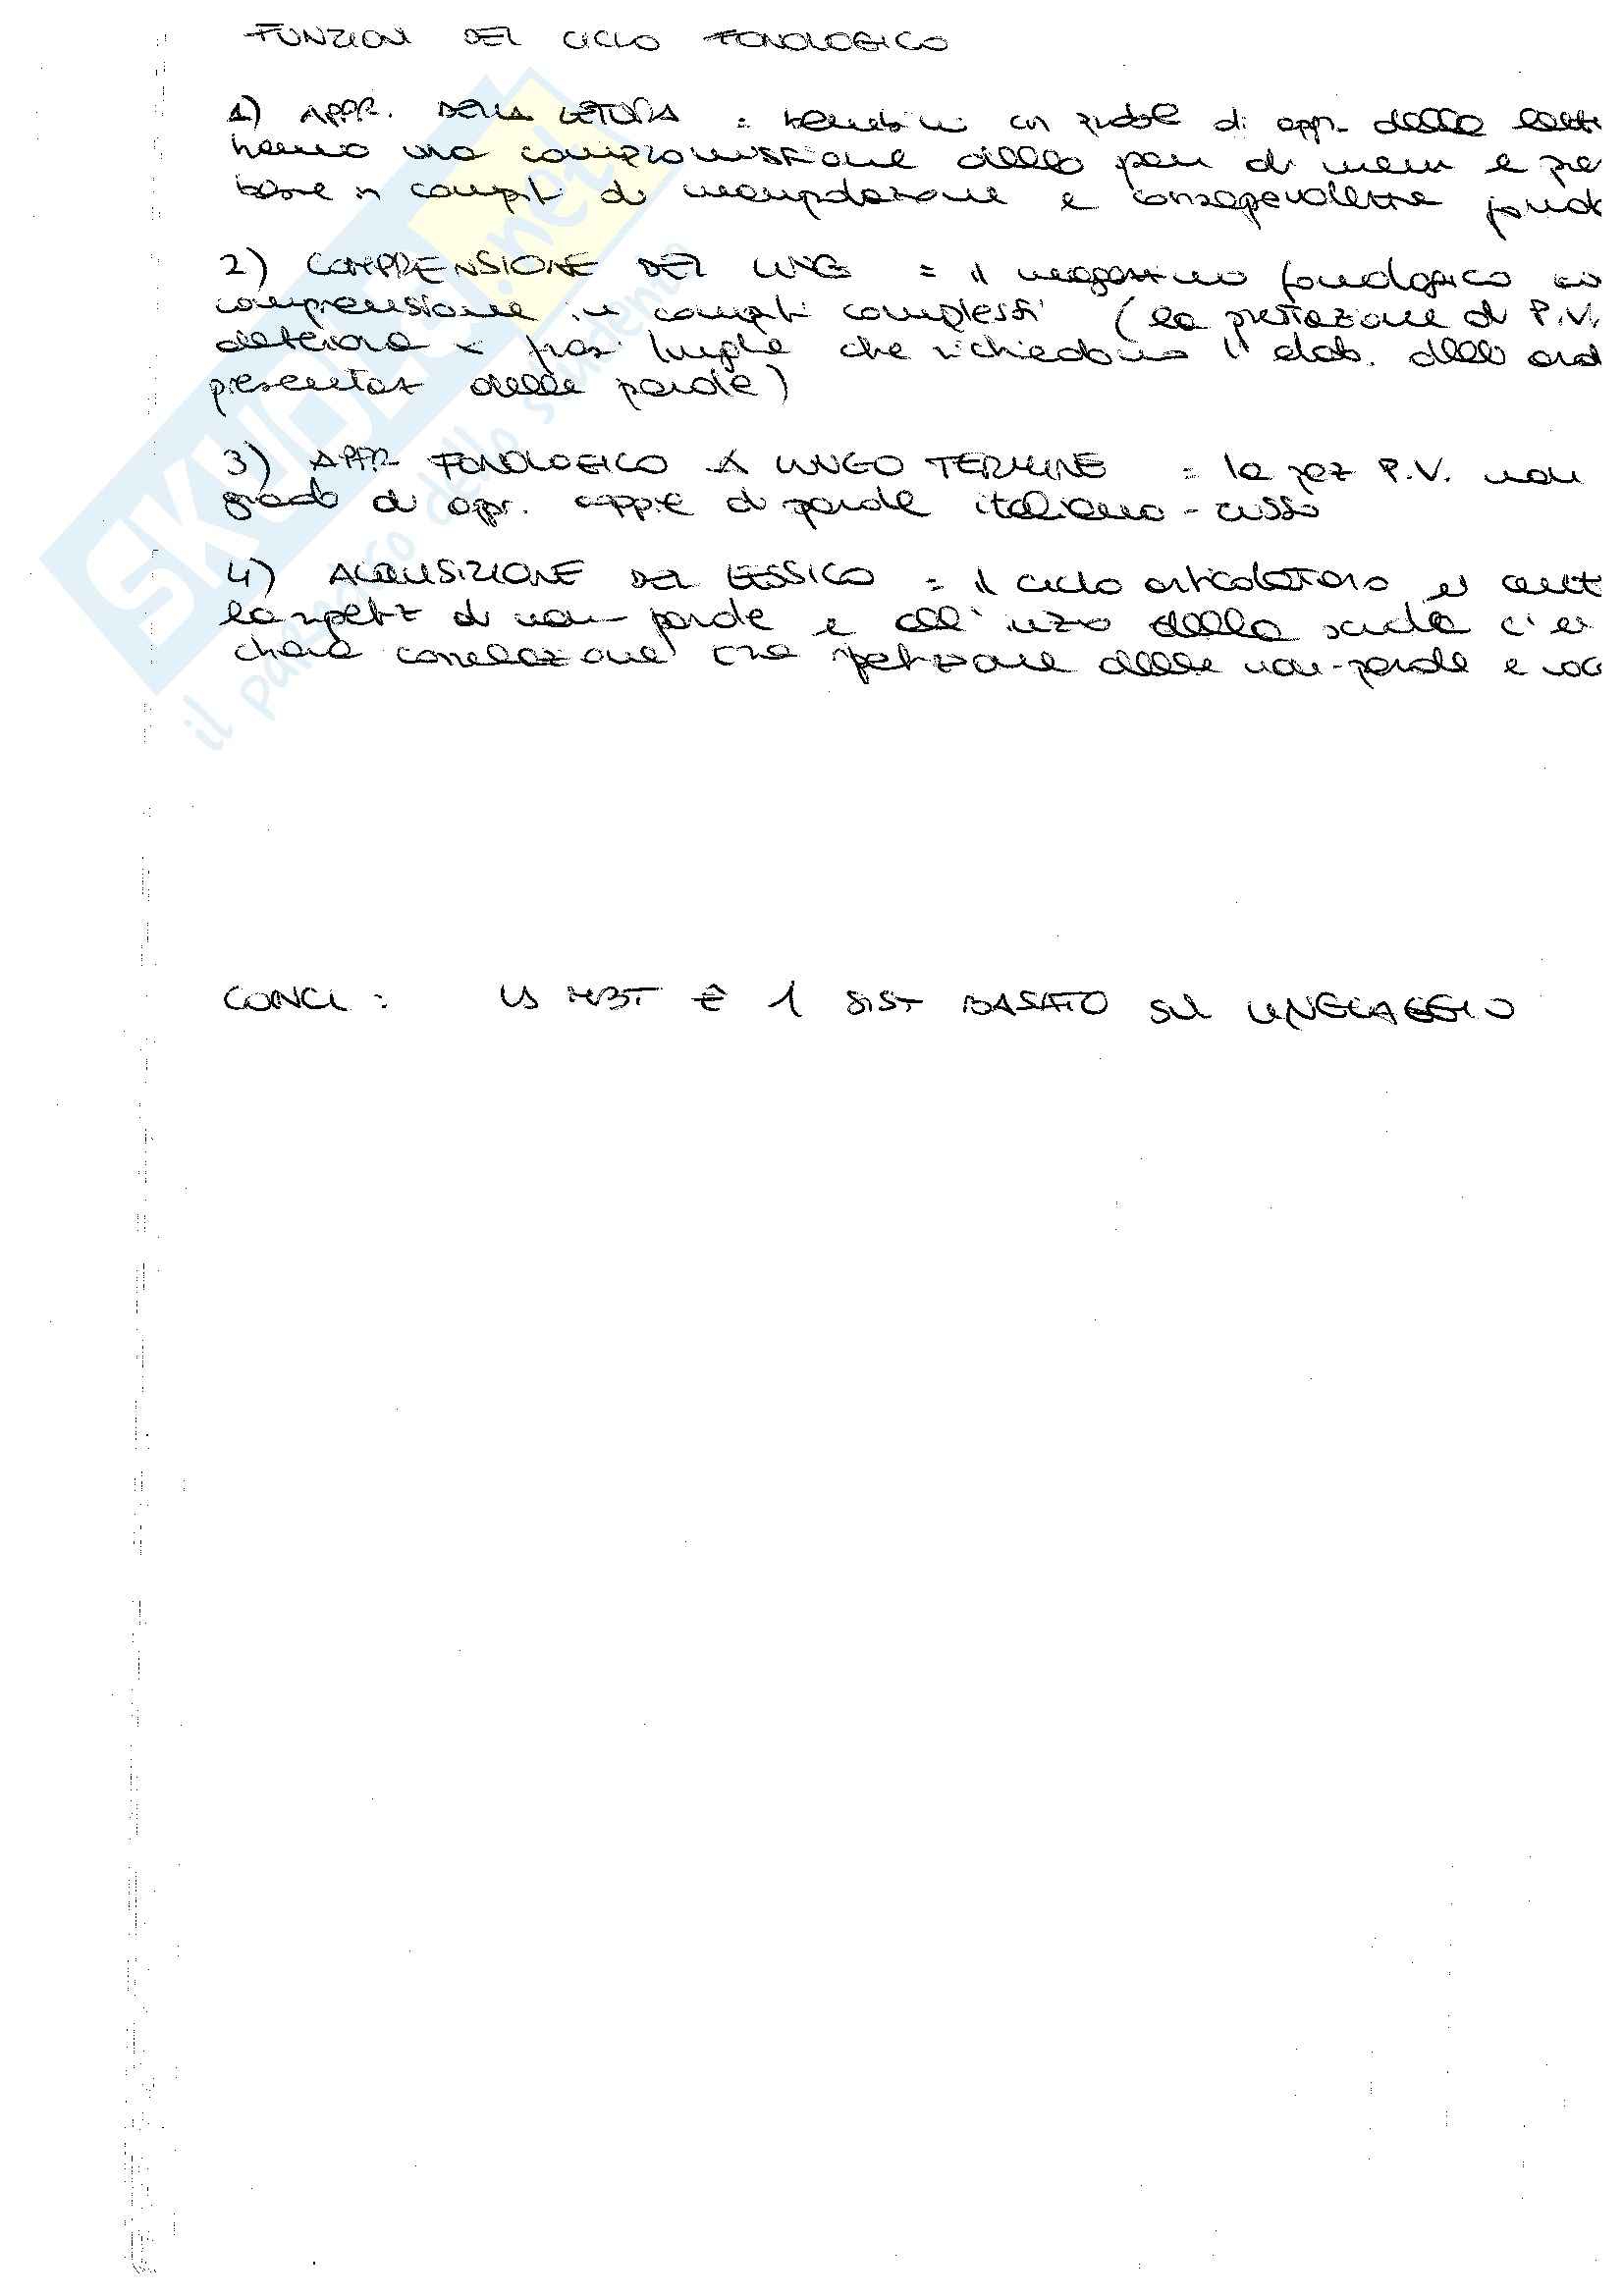 FUNZIONI DEL CICLO FONOLOGICO
1) APPR. DELLA LETTURA = bambini con probl di appr. della lett
hanno una compromissione dello pan di mem e
in compiti di manipolazione e consapevolezza fonol
2) COMPRENSIONE DEL LING = il magazzino fonologico
comprensione in compiti complessi (la prestazione di P.V.
deteriora x frasi lunghe che richiedono l' elab. dell' ord
presentaz delle parole)
3) APPR FONOLOGICO A LUNGO TERMINE = la paz P.V. non
grado di appr. coppie di parole italiano-russo
4) ACQUISIZIONE DEL LESSICO = il ciclo articolatorio
la ripetiz di non-parole e all'inizio della scuola c'è
chiara correlazione tra ripetizione delle non-parole e voc
CONCL: LA MBT È 1 SIST BASATO SUL LINGUAGGIO
SKUOLA.net
il paradiso dello studente